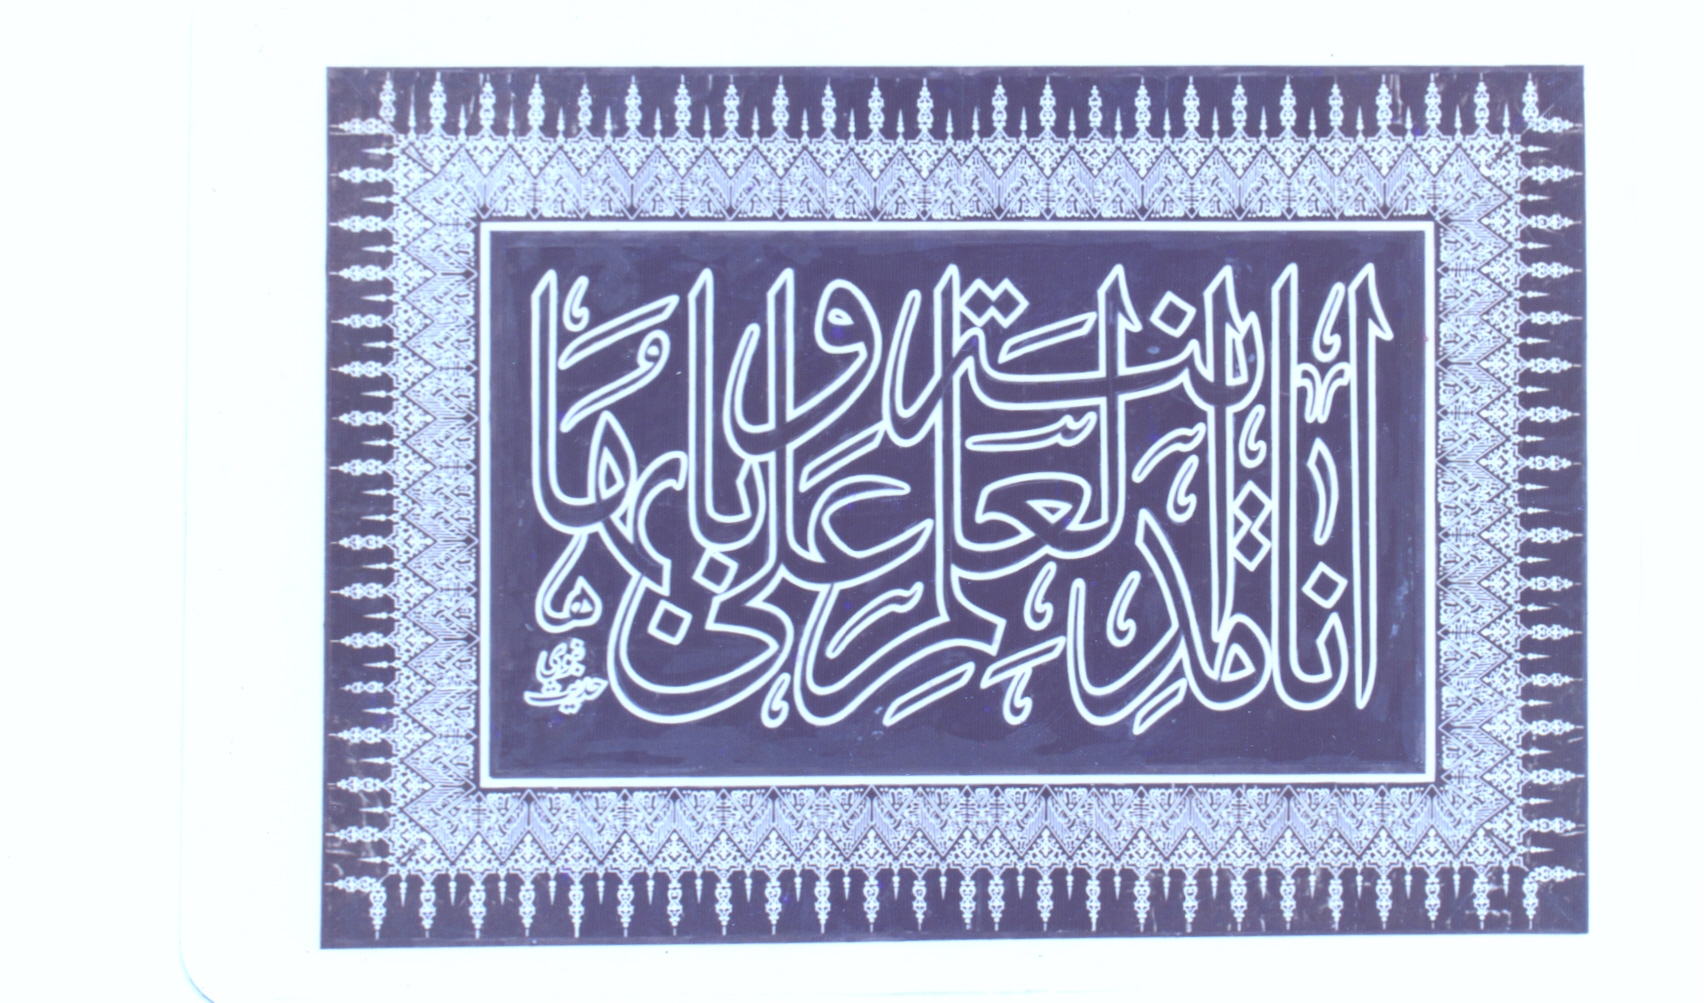 أنا مدينة العلم وعلي بابها
حديث نبوي